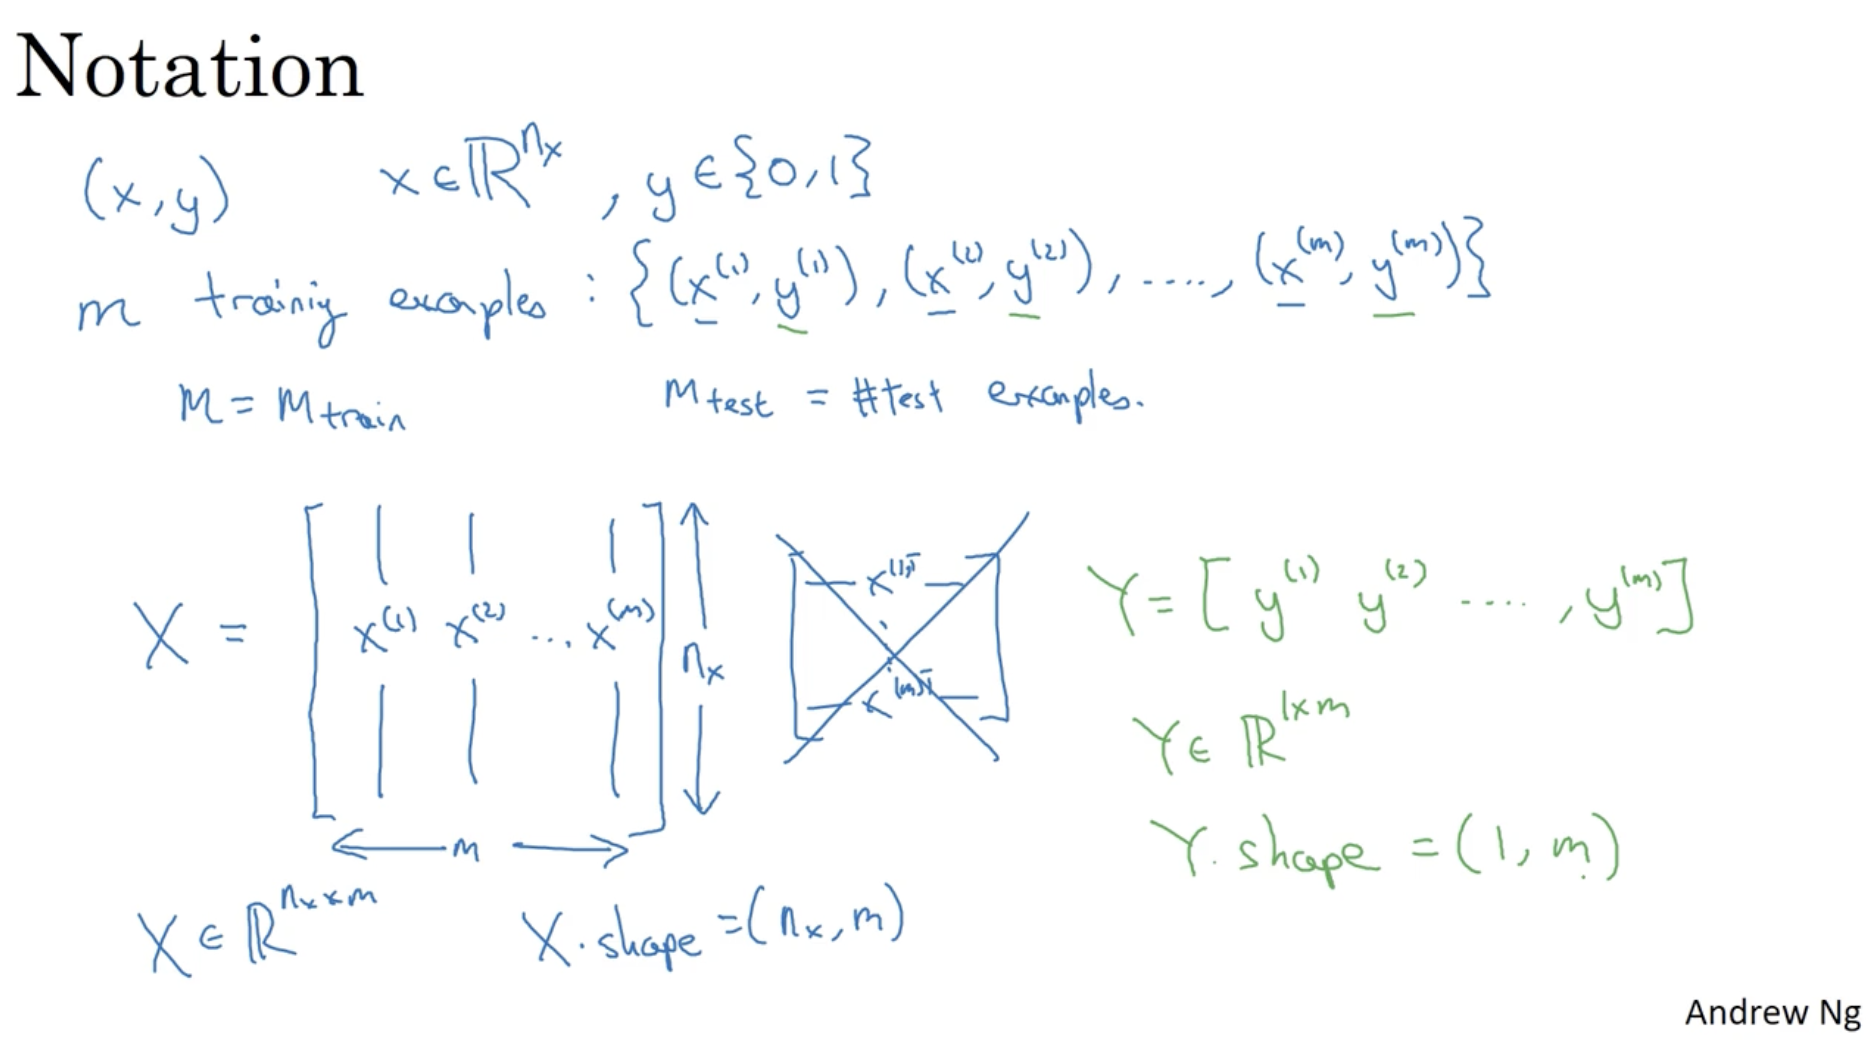 Notation
(x,y) x ∈ ℝ^{n_x}, y ∈ {0,1}
m training examples : {(x^{(1)}, y^{(1)}), (x^{(2)}, y^{(2)}), ....., (x^{(m)}, y^{(m)})}
M = M_{train} M_{test} = #test examples.
X = [x^{(1)} x^{(2)} ... x^{(m)}] n_x
m
x^{(1)T}
x^{(m)T}
X ∈ ℝ^{n_x × m} X.shape = (n_x, m)
Y = [y^{(1)} y^{(2)} ...., y^{(m)}]
Y ∈ ℝ^{1×m}
Y.shape = (1, m)
Andrew Ng